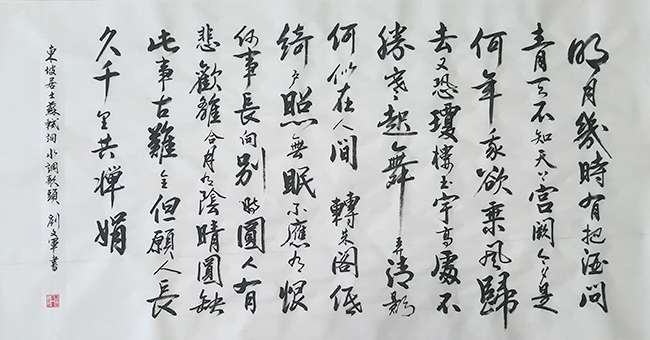 明月幾時有把酒問
青天不知天上宮闕今夕是
何年我欲乘風歸
去又恐瓊樓玉宇高處不
勝寒起舞弄清影
何似在人間轉朱閣低
綺户照無眠不應有恨
何事長向別時圓人有
悲歡離合月有陰晴圓缺
此事古難全但願人長
久千里共嬋娟
東坡居士蘇軾詞水調歌頭劉文軍書